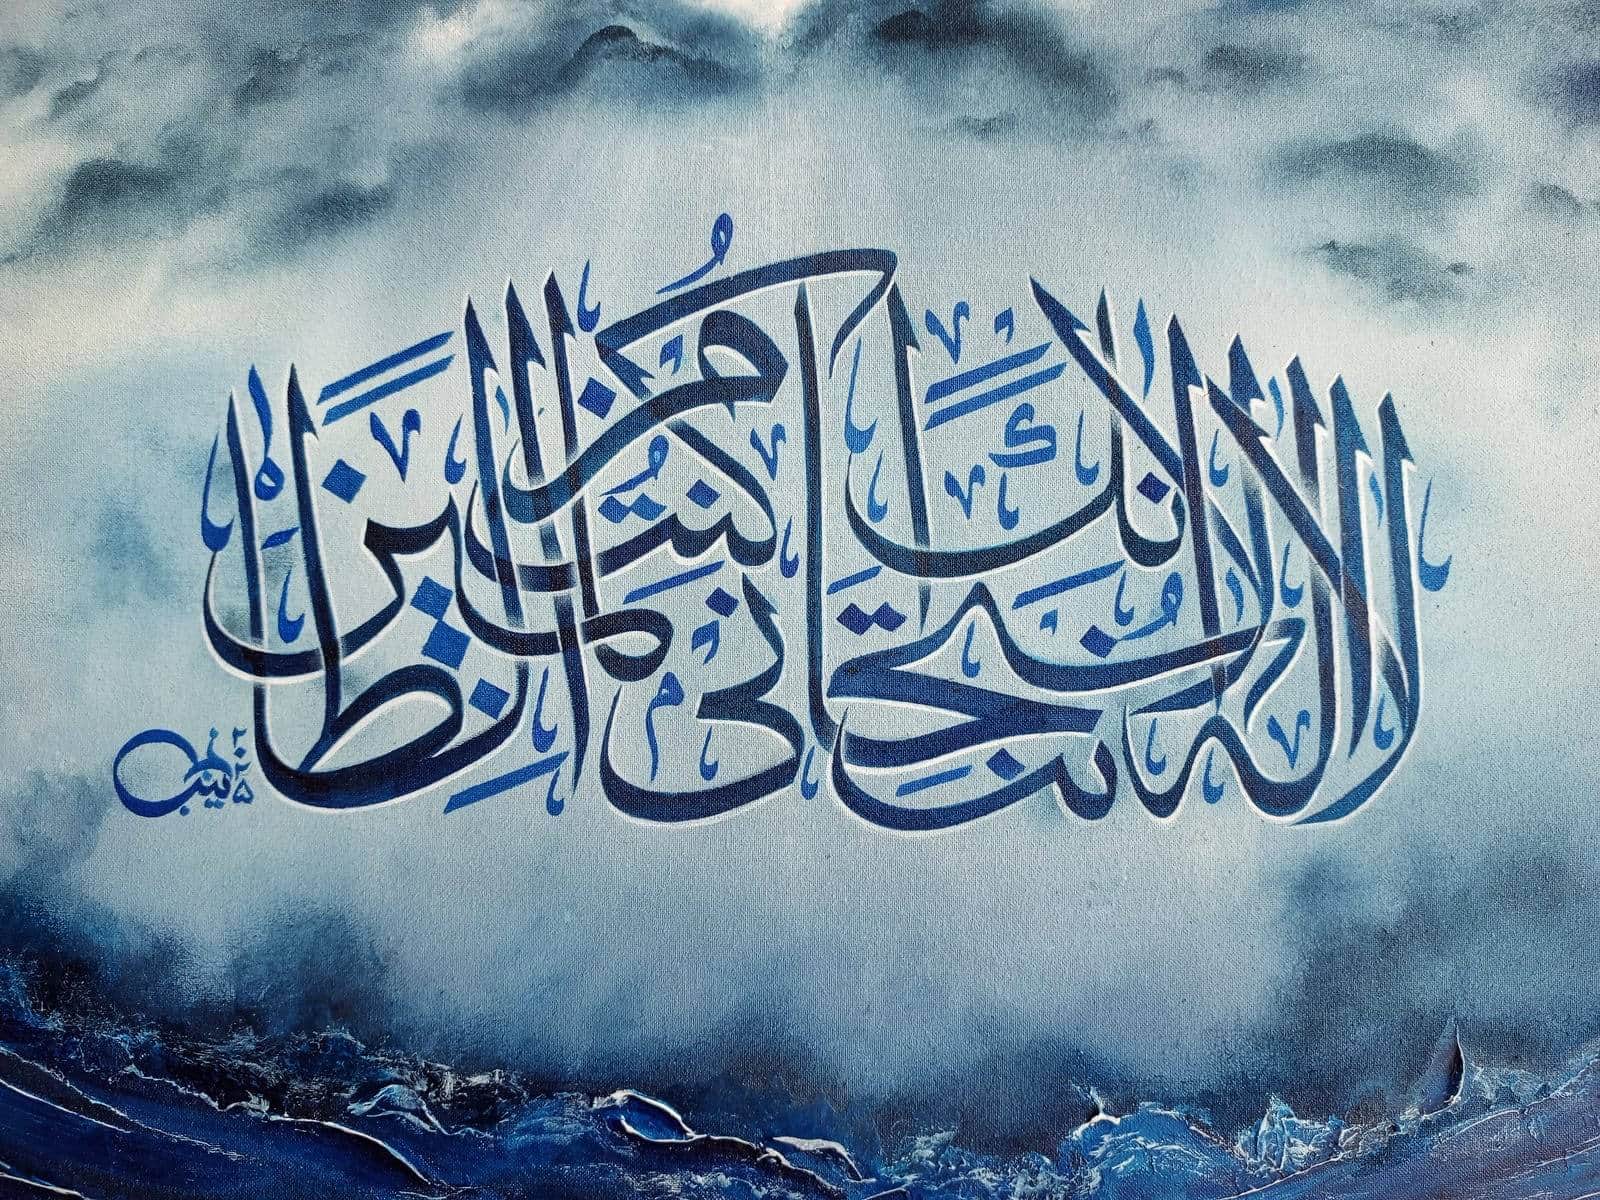 لا إله إلا أنت سبحانك إني كنت من الظالمين
٢٠٢٥